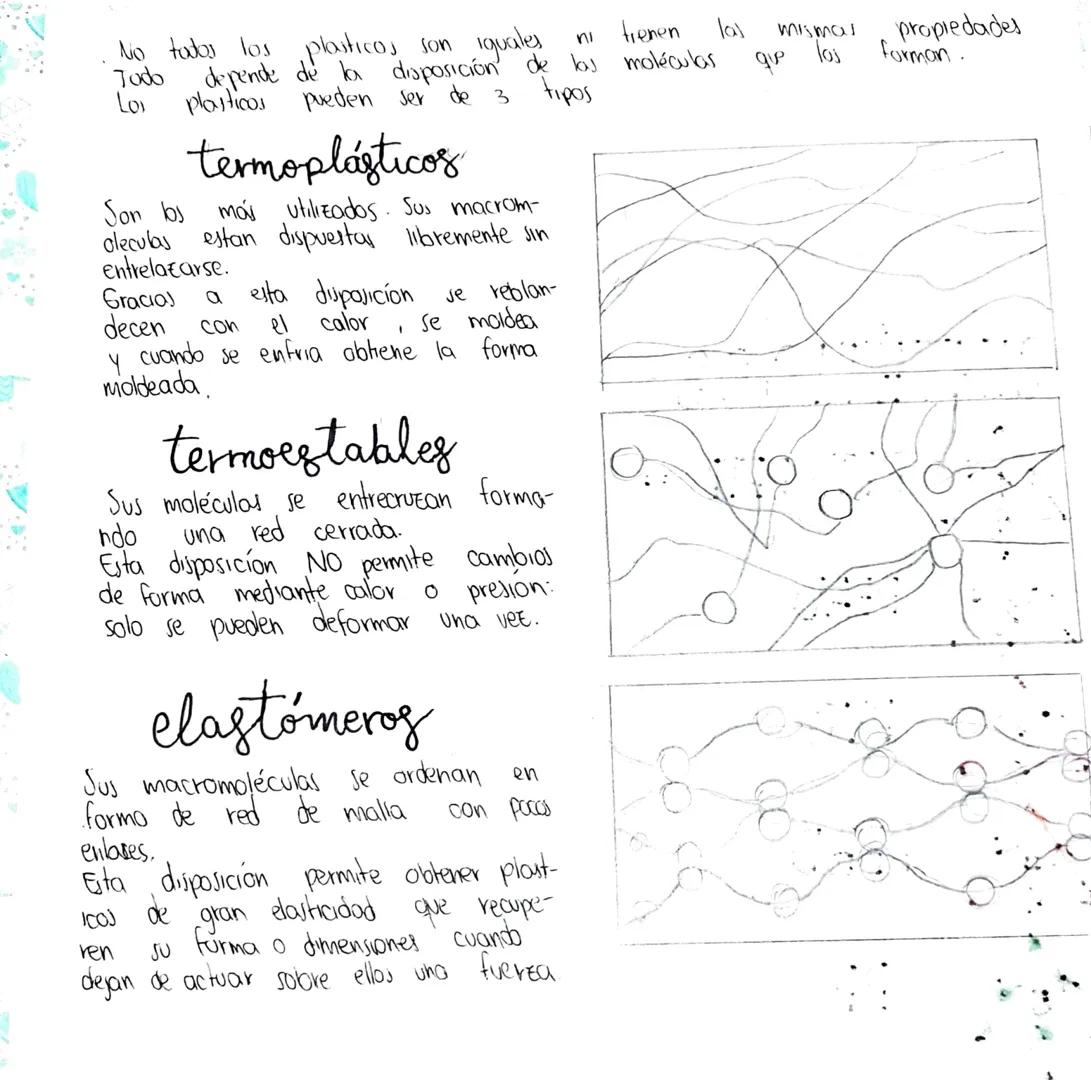 No todos los plasticos son iguales ni tienen las mismas propiedades
Todo depende de la disposición de las moléculas que los forman.
Los plasticos pueden ser de 3 tipos
termoplásticos
Son los más utilizados. Sus macrom-
oleculas estan dispuestas libremente sin
entrelazarse.
Gracias a esta disposición se reblan-
decen con el calor, se moldea
y cuando se enfria obtiene la forma
moldeada.
termoestables
Sus moléculas se entrecruzan forma-
ndo una red cerrada.
Esta disposición NO permite cambios
de forma mediante calor o presión:
solo se pueden deformar una vez.
elastómeros
Sus macromoléculas se ordenan en
forma de red de malla con pocos
enlases.
Esta disposición permite obtener plast-
icos de gran elasticidad que recupe-
ren su forma o dimensiones cuando
dejan de actuar sobre ellos una fuerza